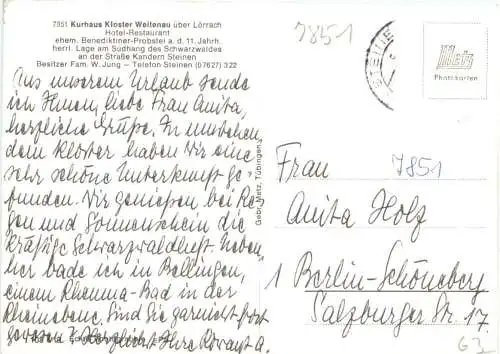 7851 Kurhaus Kloster Weitenau über Lörrach
Hotel-Restaurant
ehem. Benediktiner-Probstei a. d. 11. Jahrh.
herrl. Lage am Südhang des Schwarzwaldes
an der Straße Kandern Steinen
Besitzer Fam. W. Jung – Telefon Steinen (07627) 322
7851
STEINE
Metz
Postkarten
Aus unserem Urlaub sende
ich Ihnen, liebe Frau Anita,
herzliche Grüße. In
dem Kloster haben wir eine
sehr schöne Unterkunft ge-
funden. Wir genießen bei Re-
gen und Sonnenschein die
kräftige Schwarzwaldluft. Neben-
her bade ich in Bellingen,
einem Rheuma-Bad in der
Rheinebene. Sind Sie garnicht fort
gewesen? Herzlichst Ihre
Gebr. Metz, Tübingen
7851
Frau
Anita Holz
1 Berlin-Schöneberg
Salzburger Str. 17
63